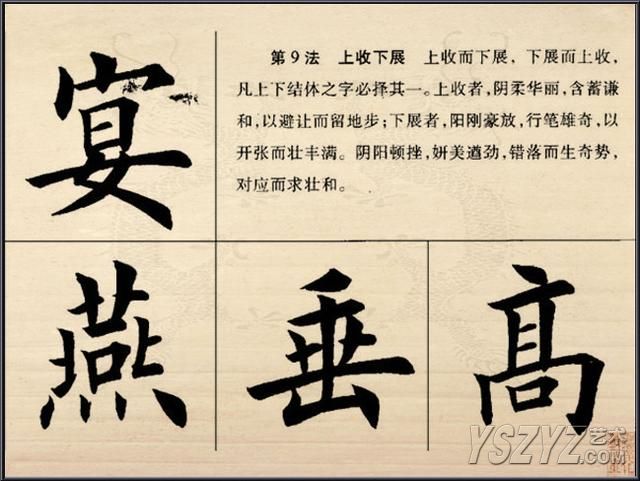 第9法 上收下展 上收而下展，下展而上收，
凡上下结体之字必择其一。上收者，阴柔华丽，含蓄谦
和，以避让而留地步；下展者，阳刚豪放，行笔雄奇，以
开张而壮丰满。阴阳顿挫，妍美遒劲，错落而生奇势，
对应而求壮和。
宴
燕 垂 高
YSZYZ艺术
.COM